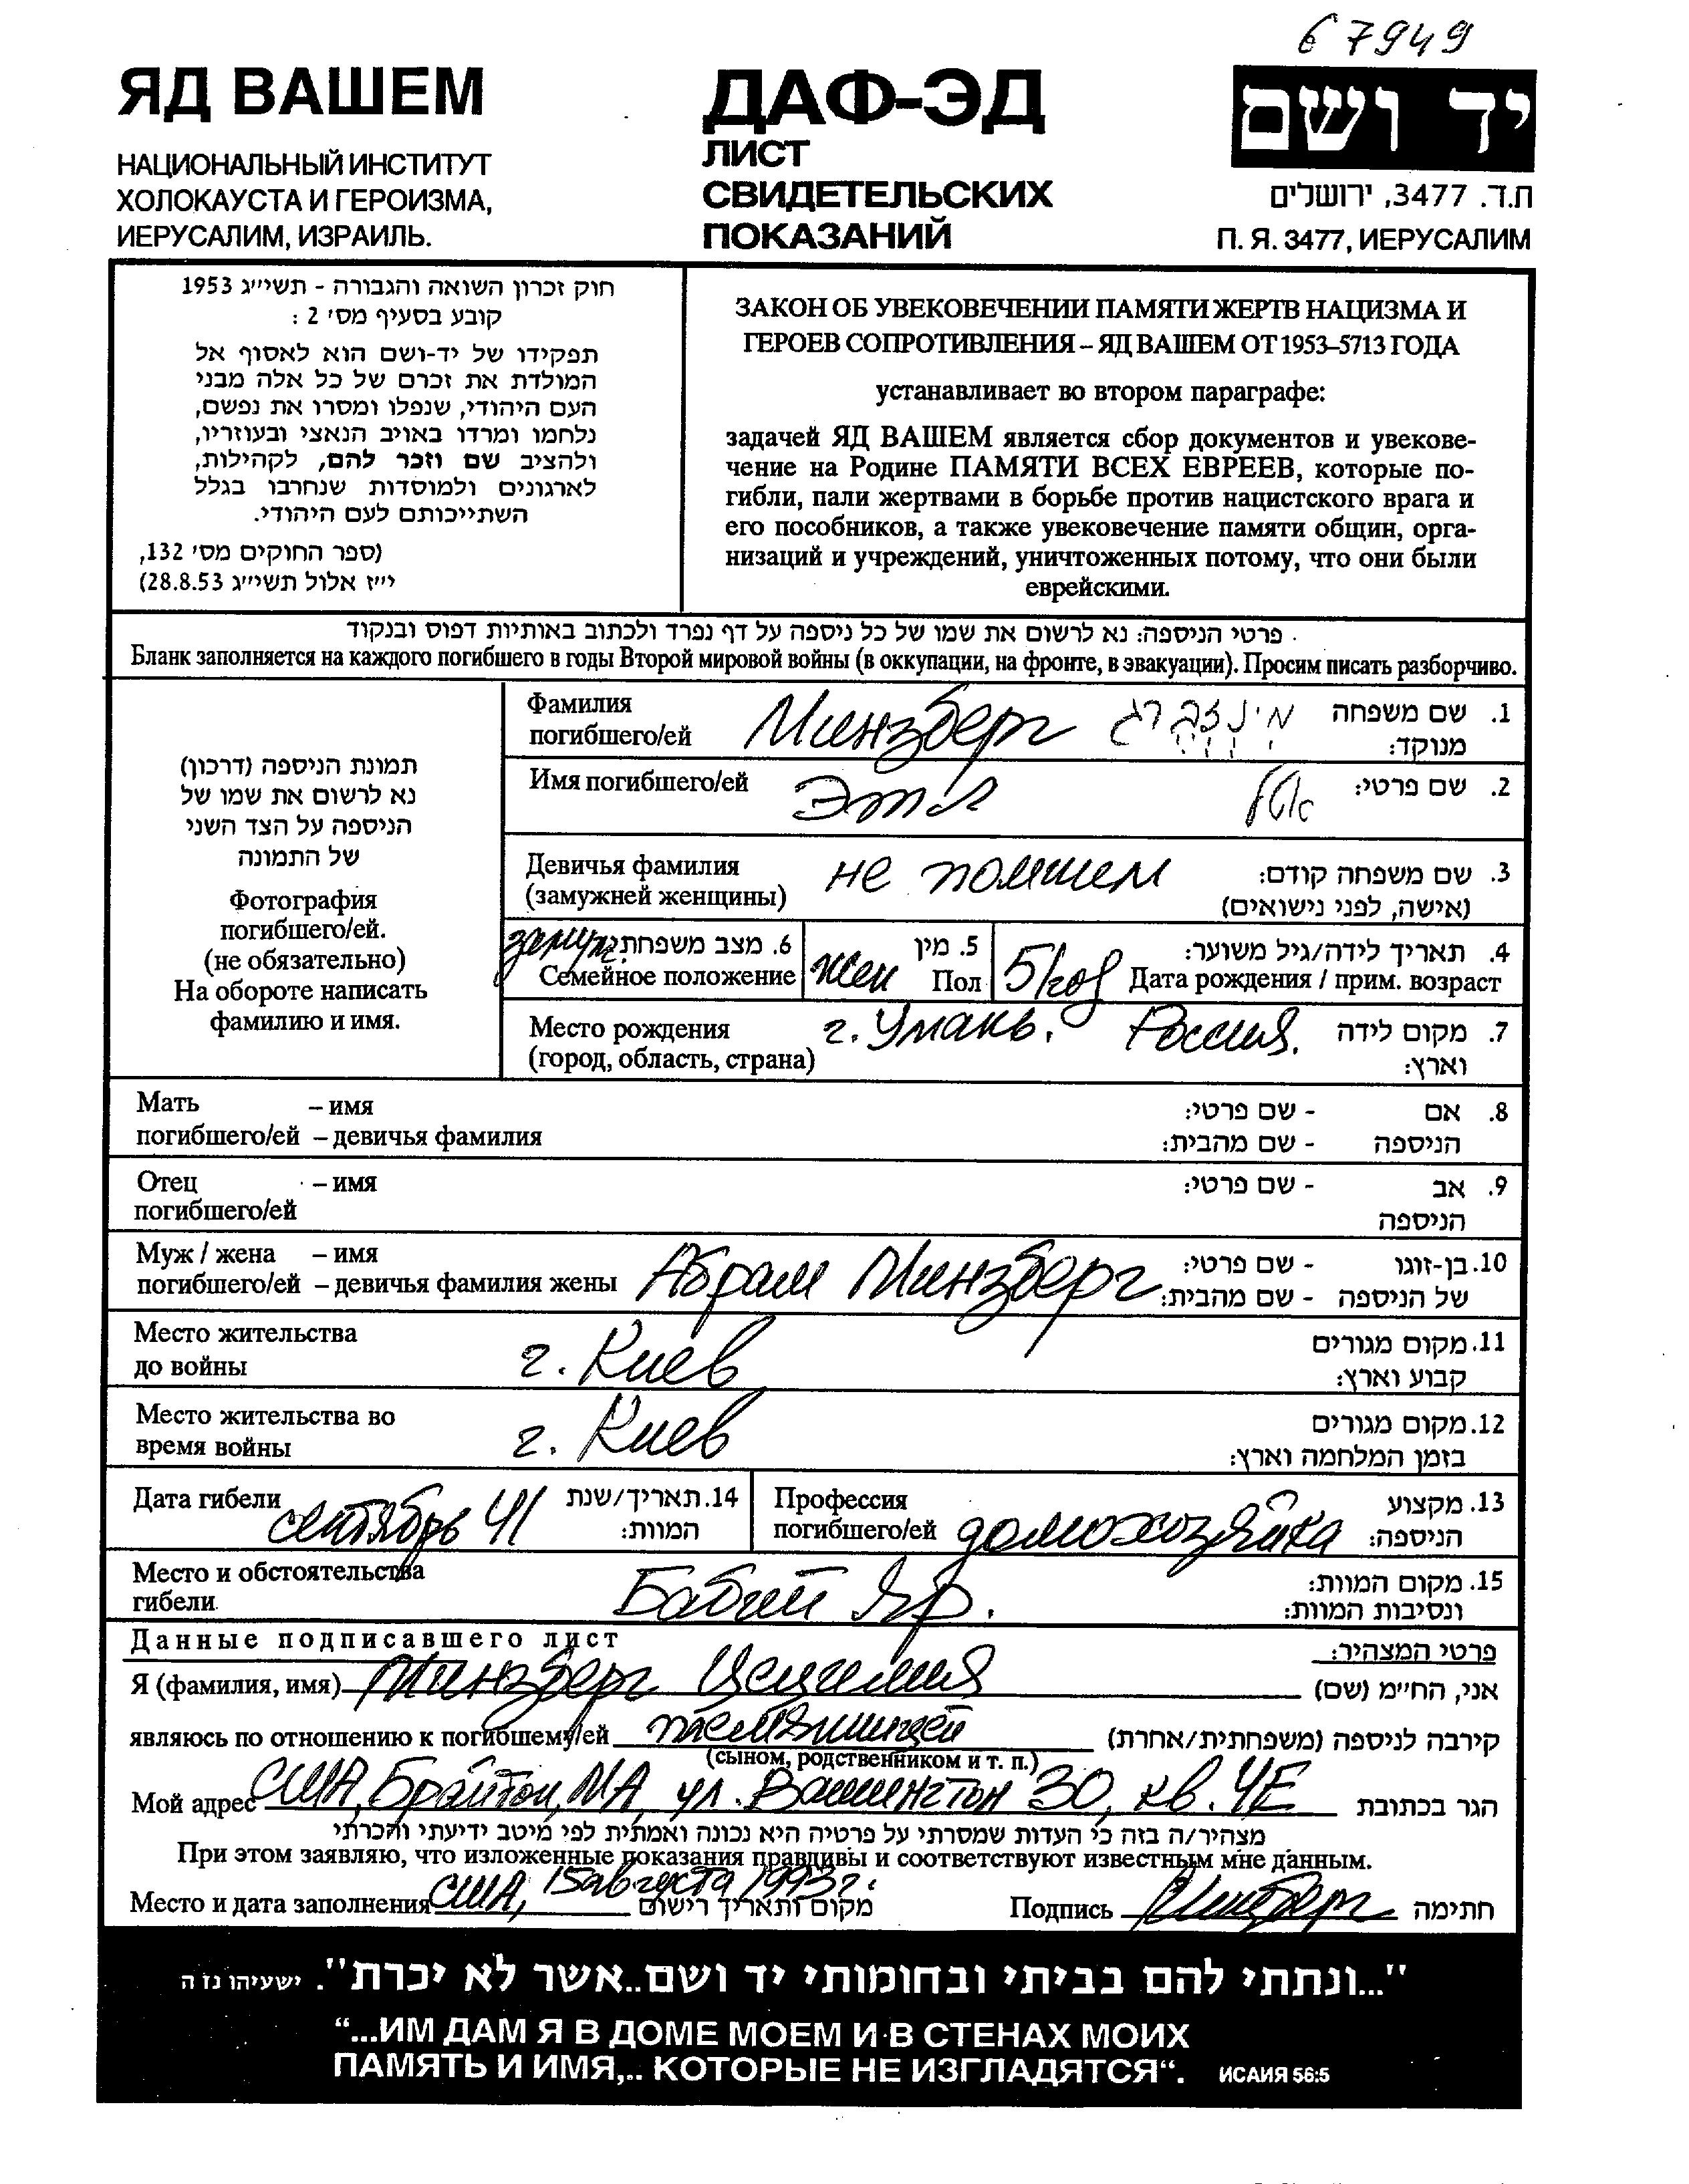 67949
ЯД ВАШЕМ
НАЦИОНАЛЬНЫЙ ИНСТИТУТ
ХОЛОКАУСТА И ГЕРОИЗМА,
ИЕРУСАЛИМ, ИЗРАИЛЬ.
ДАФ-ЭД
ЛИСТ
СВИДЕТЕЛЬСКИХ
ПОКАЗАНИЙ
יד ושם
ת.ד. 3477, ירושלים
П. Я. 3477, ИЕРУСАЛИМ
חוק זכרון השואה והגבורה - תשי״ג 1953
קובע בסעיף מס׳ 2 :
תפקידו של יד-ושם הוא לאסוף אל
המולדת את זכרם של כל אלה מבני
העם היהודי, שנפלו ומסרו את נפשם,
נלחמו ומרדו באויב הנאצי ובעוזריו,
ולהציב שם וזכר להם, לקהילות,
לארגונים ולמוסדות שנחרבו בגלל
השתייכותם לעם היהודי.
(ספר החוקים מס׳ 132,
י״ז אלול תשי״ג 28.8.53)
ЗАКОН ОБ УВЕКОВЕЧЕНИИ ПАМЯТИ ЖЕРТВ НАЦИЗМА И
ГЕРОЕВ СОПРОТИВЛЕНИЯ – ЯД ВАШЕМ ОТ 1953–5713 ГОДА
устанавливает во втором параграфе:
задачей ЯД ВАШЕМ является сбор документов и увекове-
чение на Родине ПАМЯТИ ВСЕХ ЕВРЕЕВ, которые по-
гибли, пали жертвами в борьбе против нацистского врага и
его пособников, а также увековечение памяти общин, орга-
низаций и учреждений, уничтоженных потому, что они были
еврейскими.
פרטי הניספה: נא לרשום את שמו של כל ניספה על דף נפרד ולכתוב באותיות דפוס ובנקוד
Бланк заполняется на каждого погибшего в годы Второй мировой войны (в оккупации, на фронте, в эвакуации). Просим писать разборчиво.
תמונת הניספה (דרכון)
נא לרשום את שמו של
הניספה על הצד השני
של התמונה
Фотография
погибшего/ей.
(не обязательно)
На обороте написать
фамилию и имя.
Фамилия
погибшего/ей Минзберг מינזברג
1. שם משפחה
מנוקד:
Имя погибшего/ей Этл אטל 2. שם פרטי:
Девичья фамилия
(замужней женщины) не помним
3. שם משפחה קודם:
(אישה, לפני נישואים)
замуж. 6. מצב משפחתי:
Семейное положение
жен 5. מין
Пол
51 год 4. תאריך לידה/גיל משוער:
Дата рождения / прим. возраст
Место рождения
(город, область, страна) г. Умань. Россия.
7. מקום לידה
וארץ:
Мать – имя
погибшего/ей – девичья фамилия
8. אם - שם פרטי:
הניספה - שם מהבית:
Отец – имя
погибшего/ей
9. אב - שם פרטי:
הניספה
Муж / жена – имя
погибшего/ей – девичья фамилия жены Абрам Минзберг
10. בן-זוגו - שם פרטי:
של הניספה - שם מהבית:
Место жительства
до войны г. Киев
11. מקום מגורים
קבוע וארץ:
Место жительства во
время войны г. Киев
12. מקום מגורים
בזמן המלחמה וארץ:
Дата гибели сентябрь 41
14. תאריך/שנת
המוות:
Профессия
погибшего/ей домохозяйка
13. מקצוע
הניספה:
Место и обстоятельства
гибели Бабий Яр.
15. מקום המוות:
ונסיבות המוות:
Данные подписавшего лист פרטי המצהיר:
Я (фамилия, имя) Минзберг Цецилия אני, החי״מ (שם)
являюсь по отношению к погибшему/ей племянницей קירבה לניספה (משפחתית/אחרת)
(сыном, родственником и т. п.)
Мой адрес США, Брайтон, МА, ул. Вашингтон 30, кв. 4Е הגר בכתובת
מצהיר/ה בזה כי העדות שמסרתי על פרטיה היא נכונה ואמתית לפי מיטב ידיעתי והכרתי
При этом заявляю, что изложенные показания правдивы и соответствуют известным мне данным.
Место и дата заполнения США, 15 августа 1993 г. מקום ותאריך רישום Подпись Минзберг חתימה
"...ונתתי להם בביתי ובחומותי יד ושם..אשר לא יכרת". ישעיהו נו ה
“...ИМ ДАМ Я В ДОМЕ МОЕМ И В СТЕНАХ МОИХ
ПАМЯТЬ И ИМЯ,.. КОТОРЫЕ НЕ ИЗГЛАДЯТСЯ“. ИСАИЯ 56:5